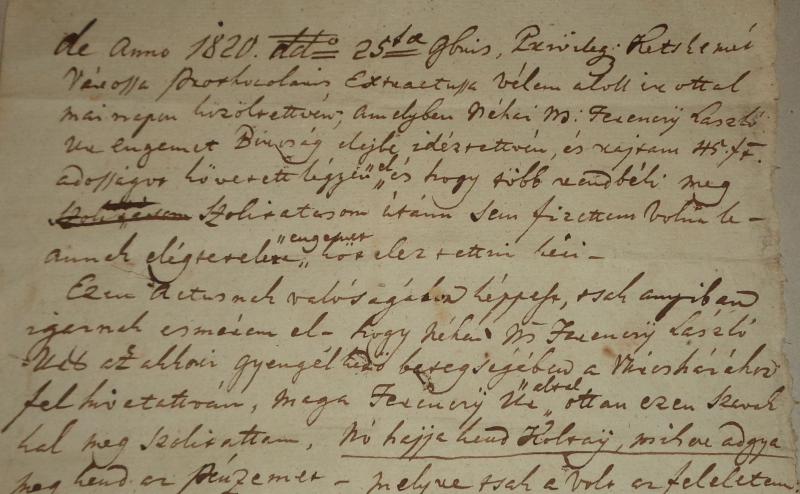 de Anno 1820. ddo 25ta 9bris, Privileg: Ketskemét
Várossa Prothocolaris Extractussa vélem alólt irottal
mai napon közöltettvén, amelyben Néhai Ns: Ferenczÿ László
Ur engemet Biróság elejbe idéztettvén, és rajtam 45. ft.
adosságot követett légyen el, és hogy több rendbéli meg
Szolittatasom útánn sem fizettem volna le-
annak elégtetelére engemet köteleztettni kéri -
Ezen Actusnak valóságához képpest, tsak anyiban
igaznak esmérem el - hogy Néhai Ns Ferenczÿ László
Ur az akkori gyengélkedő betegségében a Városházához
fel hivatattván, maga Ferenczÿ Ur által ottan ezen szavak
kal meg szolittattam, Nó hajja kend Koltaÿ, mikor adgya
meg kend az Pénzemet - melyre tsak a volt az feleletem